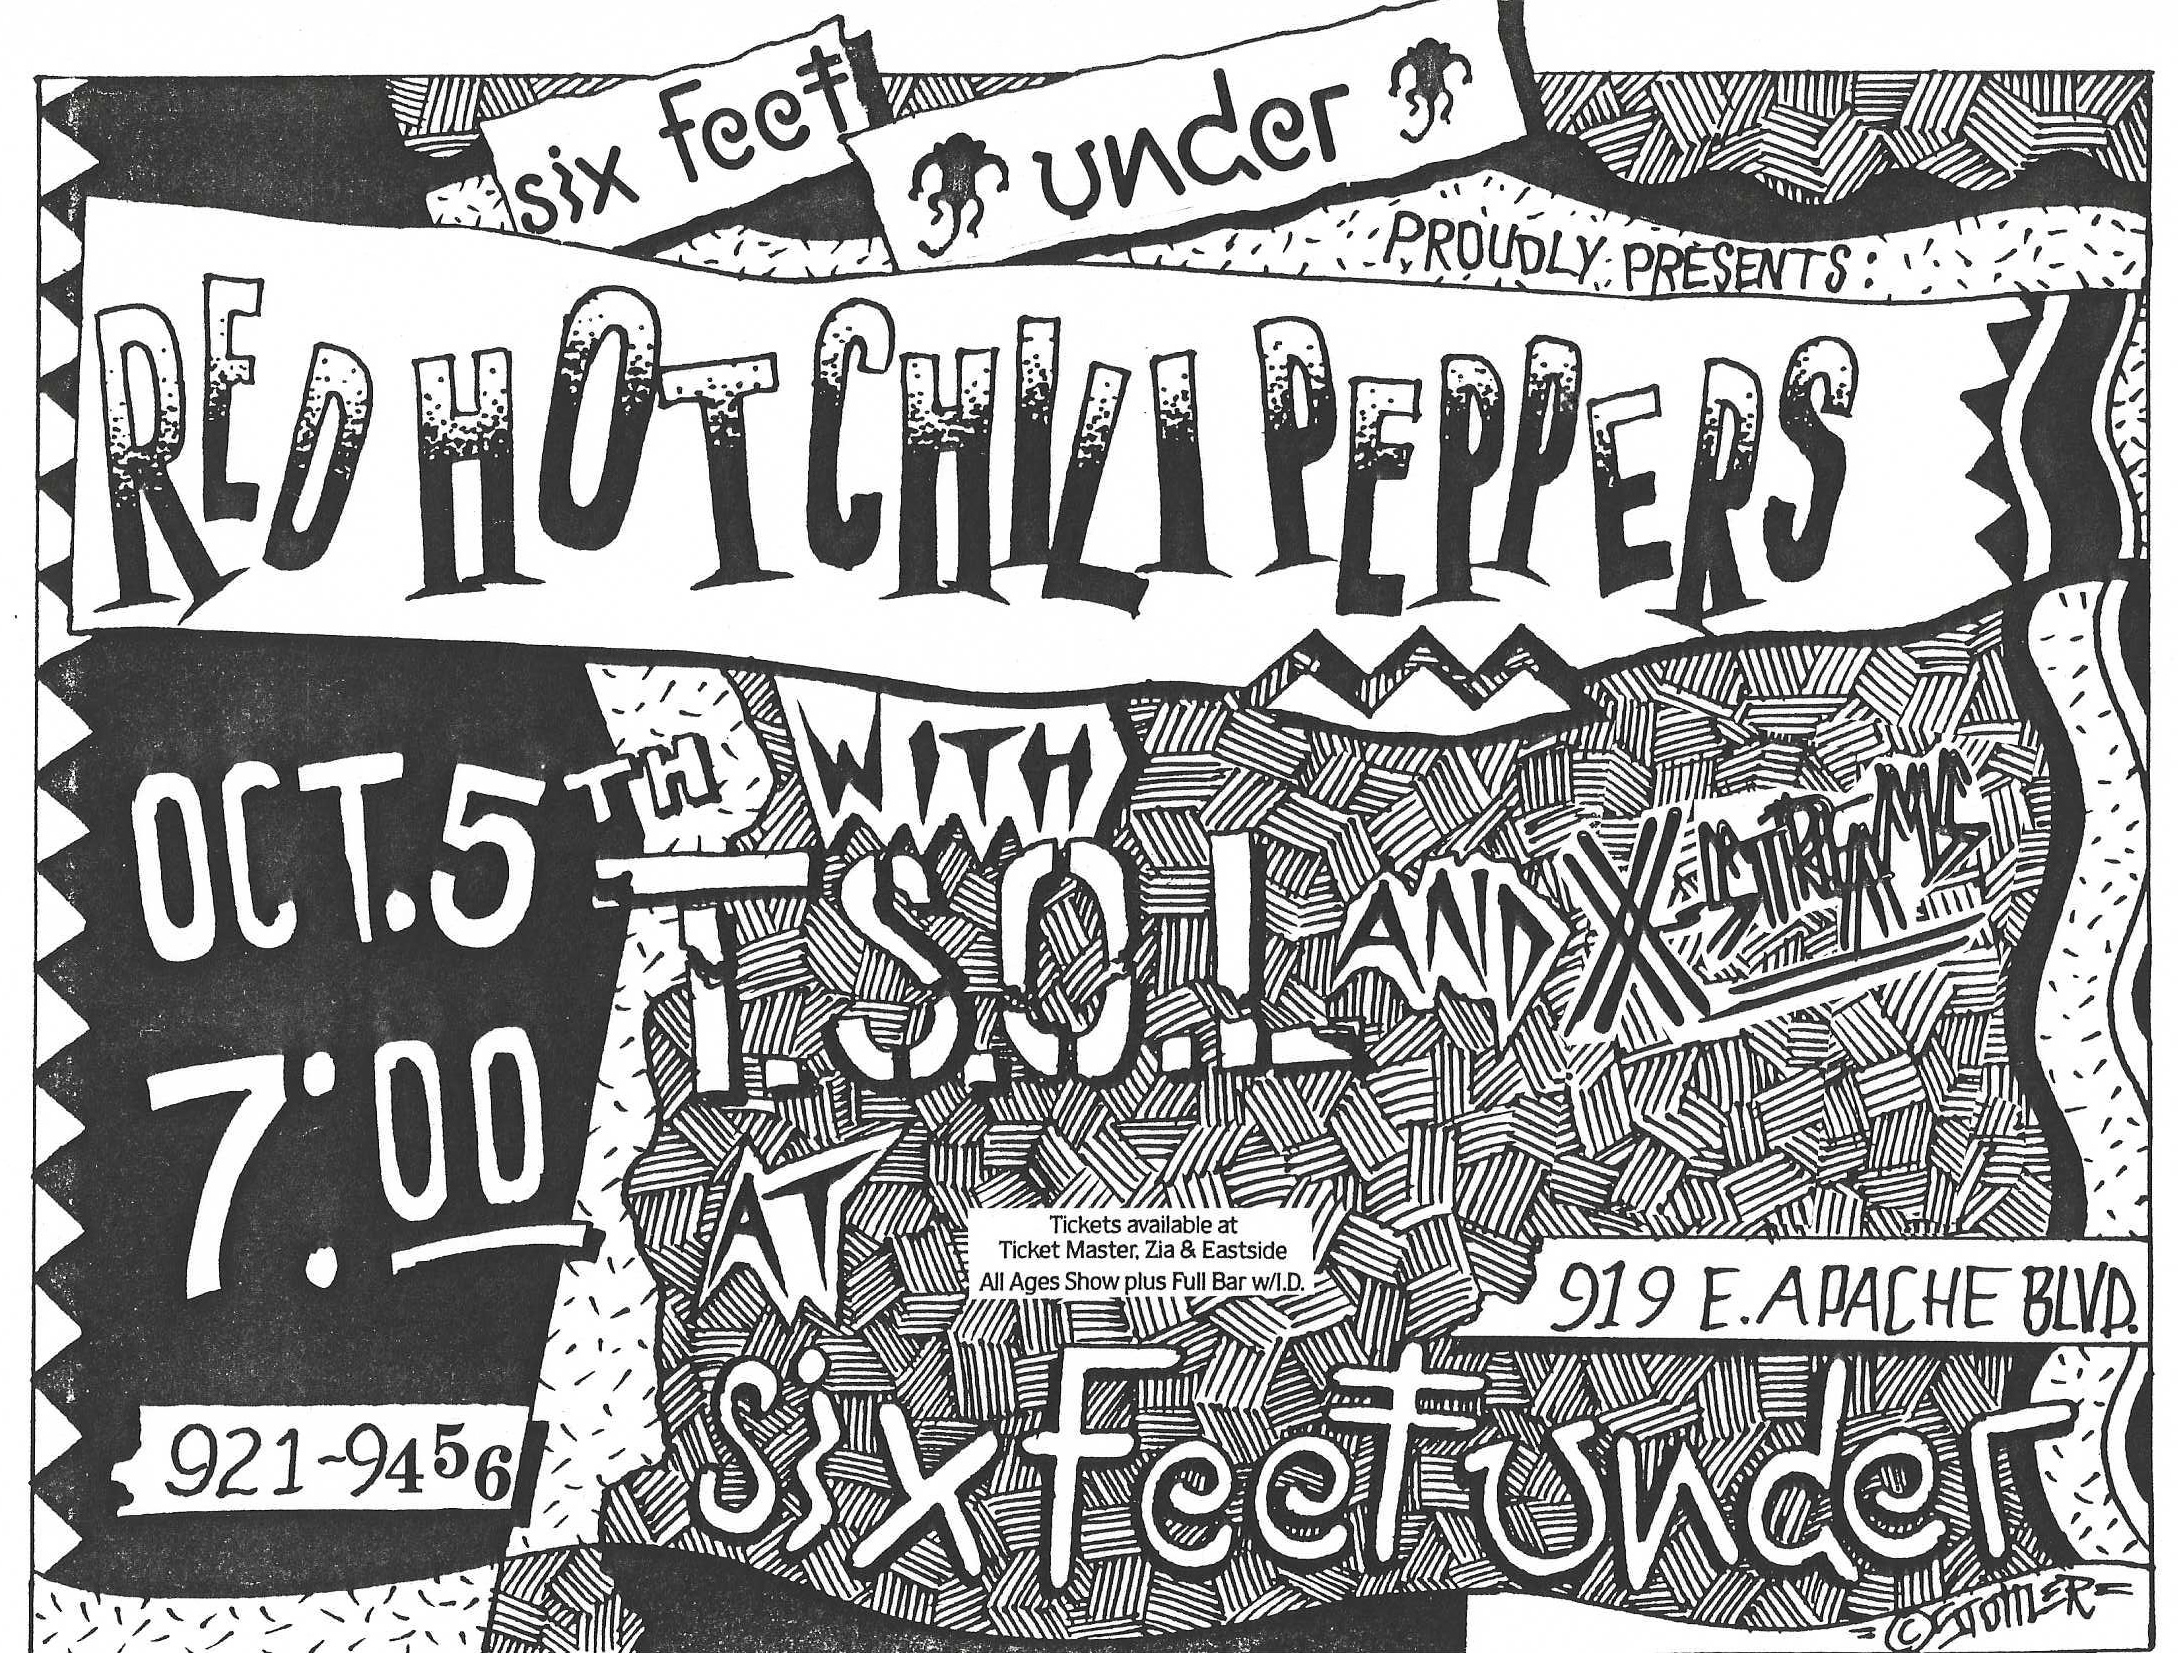 six feet
under
PROUDLY PRESENTS:
RED HOT CHILI PEPPERS
OCT. 5TH
7:00
WITH
T.S.O.L.
AND
AT
Tickets available at
Ticket Master, Zia & Eastside
All Ages Show plus Full Bar w/I.D.
919 E. APACHE BLVD.
921-9456
six feet under